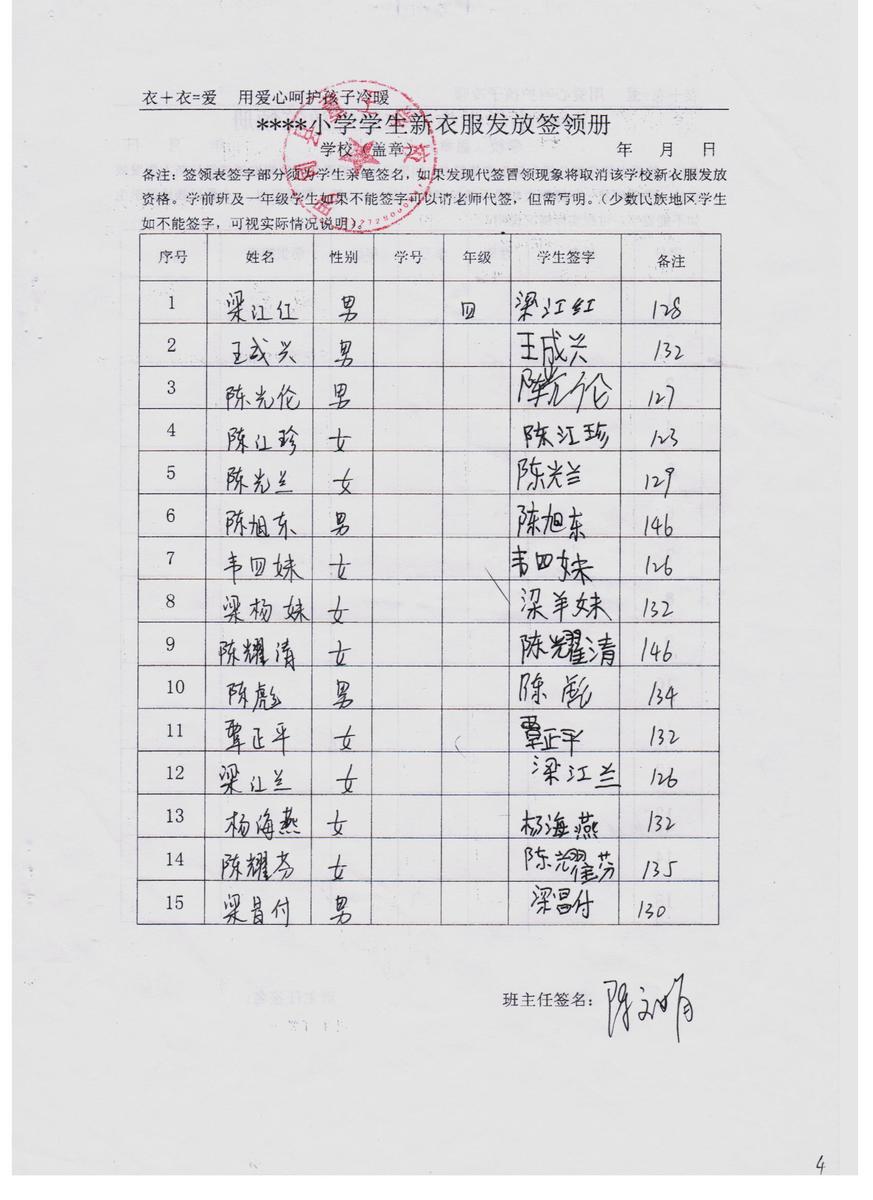 衣+衣=爱 用爱心呵护孩子冷暖
****小学学生新衣服发放签领册
学校(盖章) 年 月 日
备注:签领表签字部分须为学生亲笔签名,如果发现代签冒领现象将取消该学校新衣服发放
资格。学前班及一年级学生如果不能签字可以请老师代签,但需写明。(少数民族地区学生
如不能签字,可视实际情况说明)。
序号 姓名 性别 学号 年级 学生签字 备注
1 梁江红 男 四 梁江红 128
2 王成兴 男 王成兴 132
3 陈光伦 男 陈光伦 127
4 陈江珍 女 陈江珍 123
5 陈光兰 女 陈光兰 129
6 陈旭东 男 陈旭东 146
7 韦四妹 女 韦四妹 126
8 梁杨妹 女 梁羊妹 132
9 陈耀清 女 陈耀清 146
10 陈彪 男 陈彪 134
11 覃正平 女 覃正平 132
12 梁江兰 女 梁江兰 126
13 杨海燕 女 杨海燕 132
14 陈耀芬 女 陈耀芬 135
15 梁昌付 男 梁昌付 130
班主任签名: 陈文娟
4